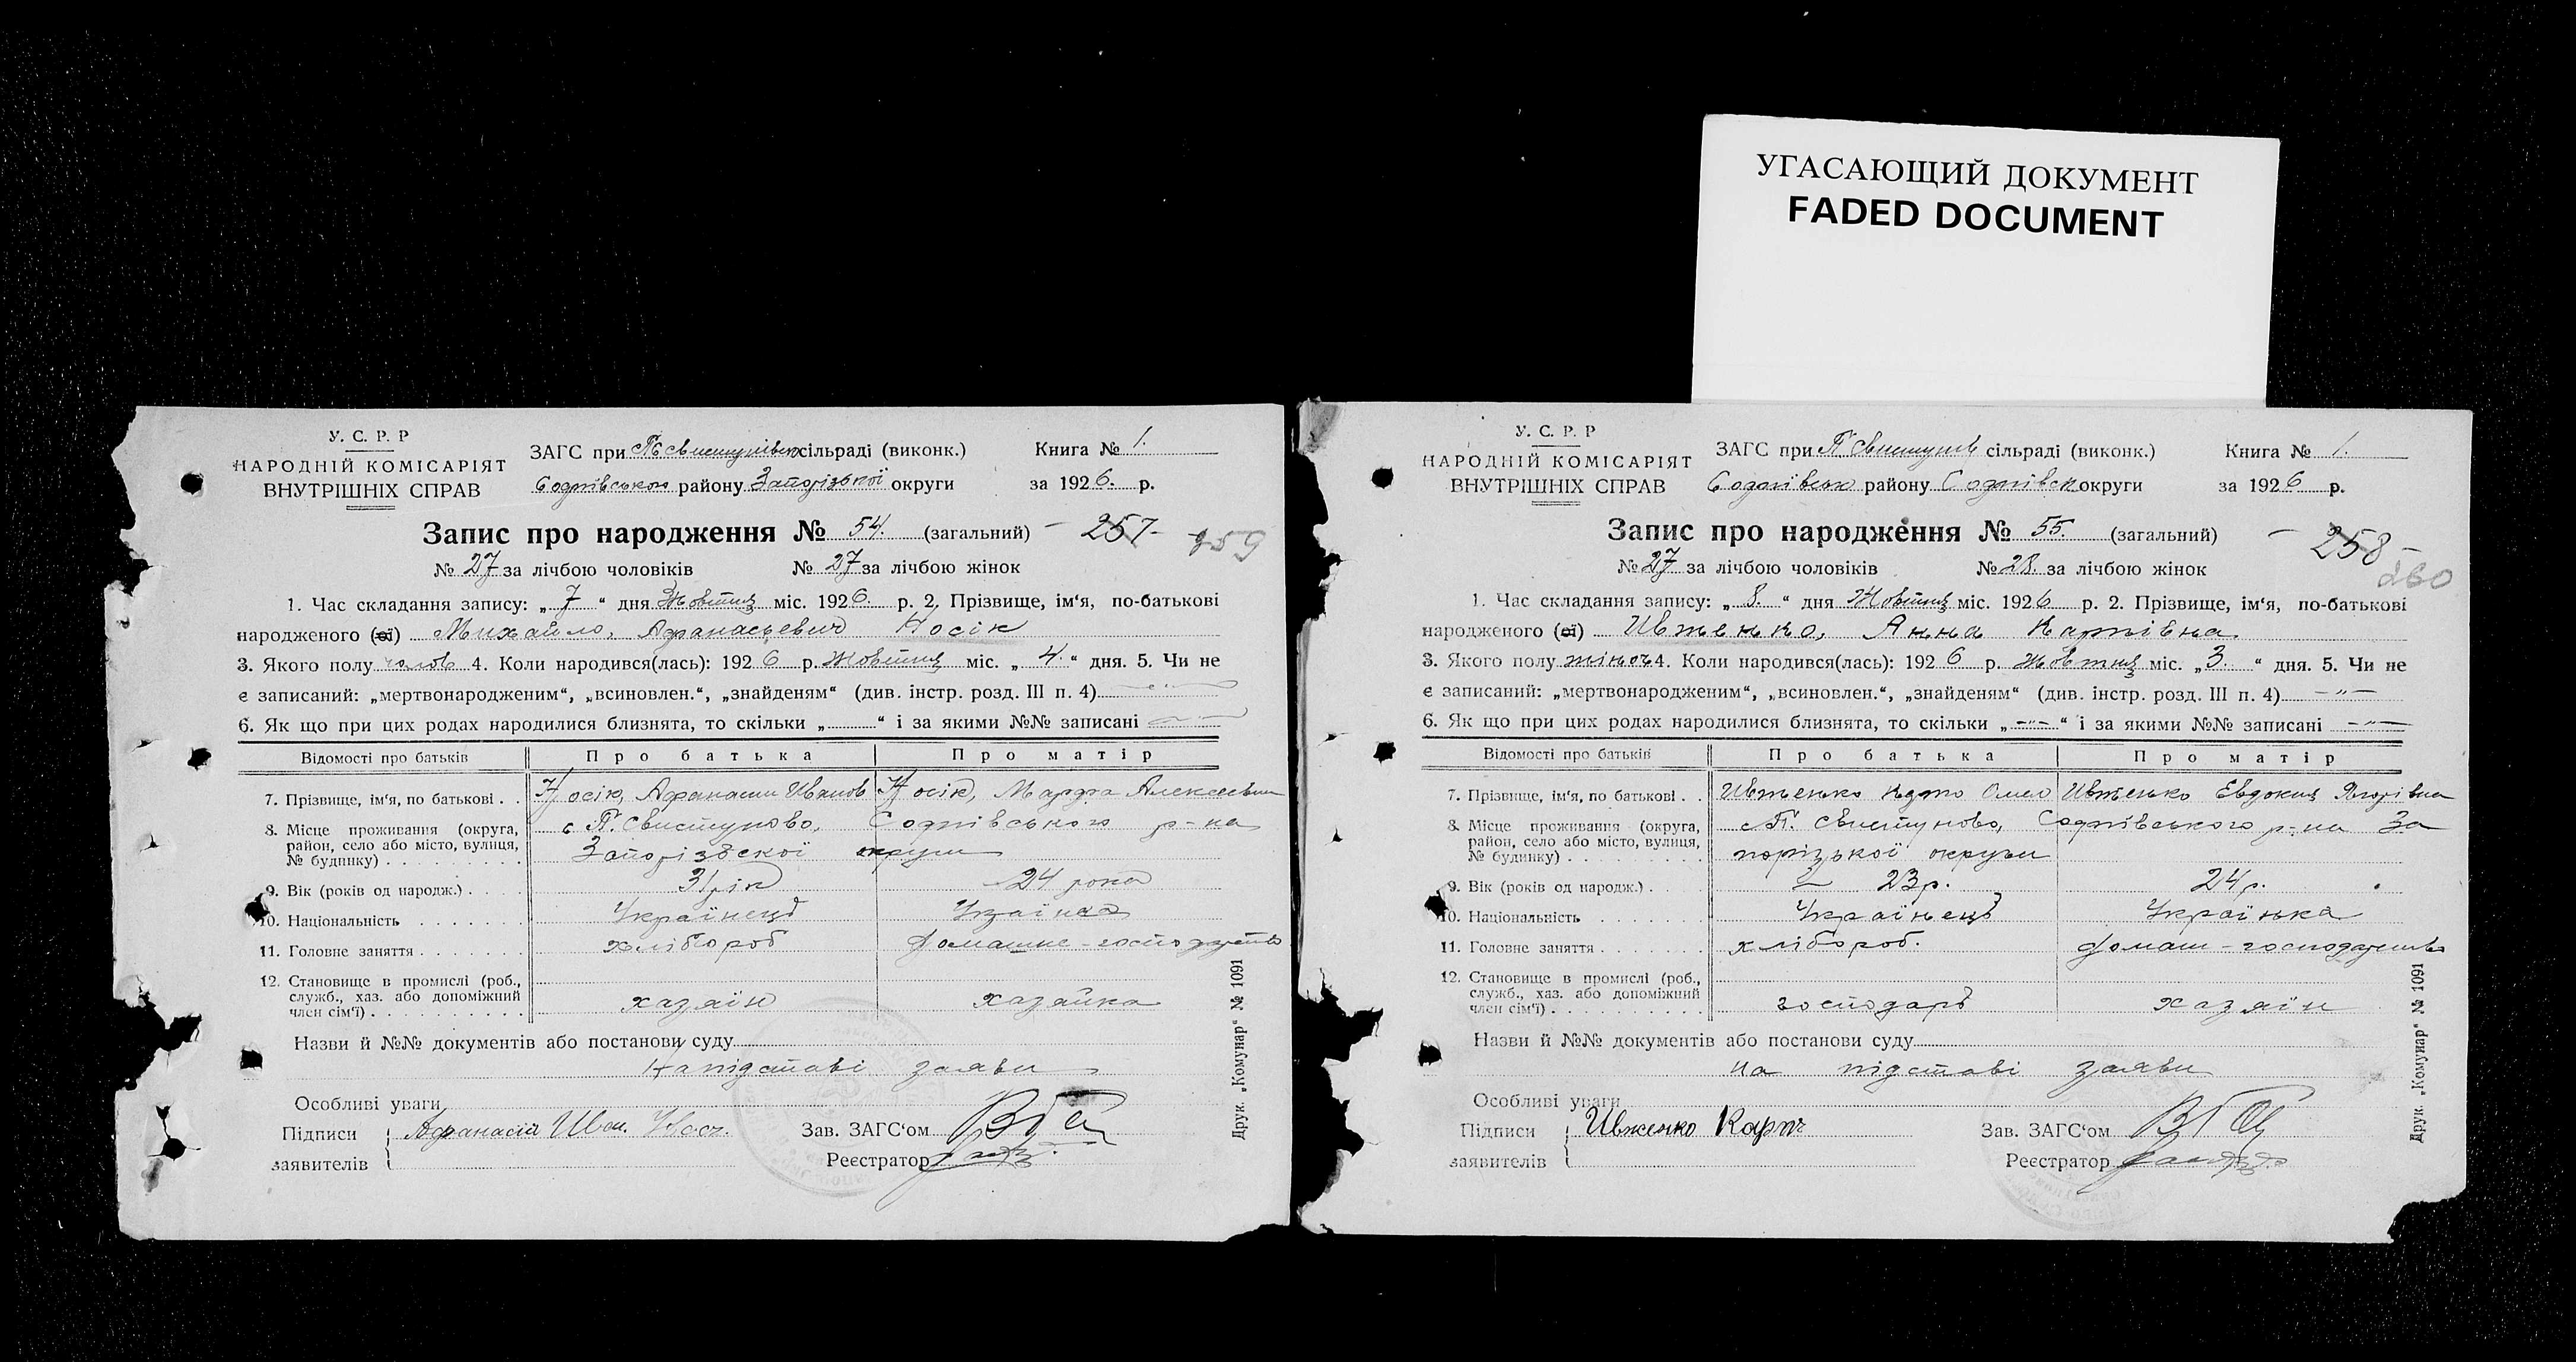 УГАСАЮЩИЙ ДОКУМЕНТ
FADED DOCUMENT
У. С. Р. Р
НАРОДНІЙ КОМІСАРІЯТ
ВНУТРІШНІХ СПРАВ
ЗАГС при сільраді (виконк.) Книга № 1.
району Запорізької округи за 1926. р.
Запис про народження № 54. (загальний) - 257- 259
№ 27 за лічбою чоловіків № 27 за лічбою жінок
1. Час складання запису: „ 7 “ дня Жовтня міс. 1926. р. 2. Прізвище, ім‘я, по-батькові
народженого (ої) Михайло, Афанасьевич Носік
3. Якого полу чолов 4. Коли народився(лась): 1926 р. Жовтня міс. „ 4. “ дня. 5. Чи не
є записаний: „мертвонародженим“, „всиновлен.“, „знайденям“ (див. інстр. розд. III п. 4) — " —
6. Як що при цих родах народилися близнята, то скільки „ “ і за якими №№ записані — " —
Відомості про батьків Про батька Про матір
7. Прізвище, ім‘я, по батькові . . Носік, Афанасий Иванов Носік, Марфа Алексеевна
8. Місце проживання (округа, с П. Свистуново, р-на
район, село або місто, вулиця,
№ будинку) . . . . . . . . . Запорізської округи
9. Вік (років од народж.) . . . . 31 рік 24 рока
10. Національність . . . . . . . Українець
11. Головне заняття . . . . . . . хлібороб домашне-господарство
12. Становище в промислі (роб.,
служб., хаз. або допоміжний
член сім‘ї) . . . . . . . . . . хазяїн хазяйка
Назви й №№ документів або постанови суду
На підставі заяви
Особливі уваги
Підписи Афанасий Ив. Носік
заявителів
Зав. ЗАГС‘ом
Реєстратор
Друк. „Комунар“ № 1091
У. С. Р. Р
НАРОДНІЙ КОМІСАРІЯТ
ВНУТРІШНІХ СПРАВ
ЗАГС при П Свистунів сільраді (виконк.) Книга № 1.
району округи за 1926 р.
Запис про народження № 55. (загальний) - 258 - 260
№ 27 за лічбою чоловіків № 28. за лічбою жінок
1. Час складання запису: „ 8. “ дня Жовтня міс. 1926 р. 2. Прізвище, ім‘я, по-батькові
народженого (ої) Ивженко, Анна Карпівна
3. Якого полу жіноч 4. Коли народився(лась): 1926 р. Жовтня міс. „ 3. “ дня. 5. Чи не
є записаний: „мертвонародженим“, „всиновлен.“, „знайденям“ (див. інстр. розд. III п. 4) — " —
6. Як що при цих родах народилися близнята, то скільки „ — " — “ і за якими №№ записані — " —
Відомості про батьків Про батька Про матір
7. Прізвище, ім‘я, по батькові . . Ивженко Ивженко Евдокия
8. Місце проживання (округа, с П. Свистуново, р-на За
район, село або місто, вулиця,
№ будинку) . . . . . . . . . порізької округи
9. Вік (років од народж.) . . . . 23 р. 24 р.
10. Національність . . . . . . . Українець Українька
11. Головне заняття . . . . . . . хлібороб. домаш-господарство
12. Становище в промислі (роб.,
служб., хаз. або допоміжний
член сім‘ї) . . . . . . . . . . господарь хазяїн
Назви й №№ документів або постанови суду
на підставі заяви
Особливі уваги
Підписи Ивженко Карп
заявителів
Зав. ЗАГС‘ом
Реєстратор
Друк. „Комунар“ № 1091